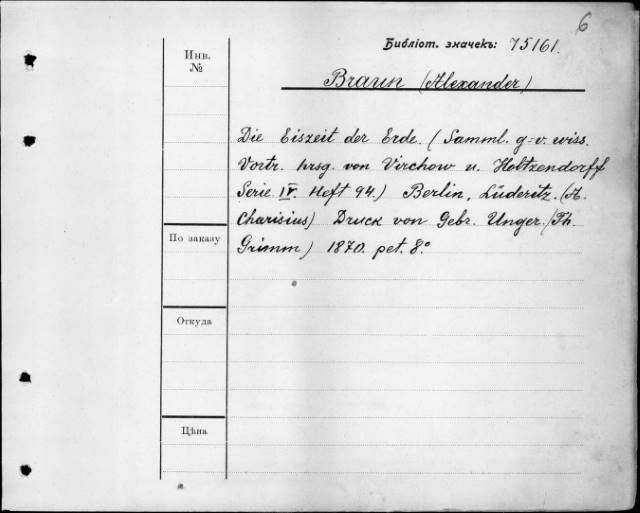 6
Библіот. значекъ: 75161.
Инв.
№
Braun (Alexander)
Die Eiszeit der Erde. (Samml. g=v. wiss.
Vortr. hrsg. von Virchow u. Holtzendorff
Serie IV. Heft 94.) Berlin, Lüderitz. (A.
Charisius) Druck von Gebr. Unger. (Th.
Grimm) 1870. pet. 8.°
По заказу
Откуда
Цѣна